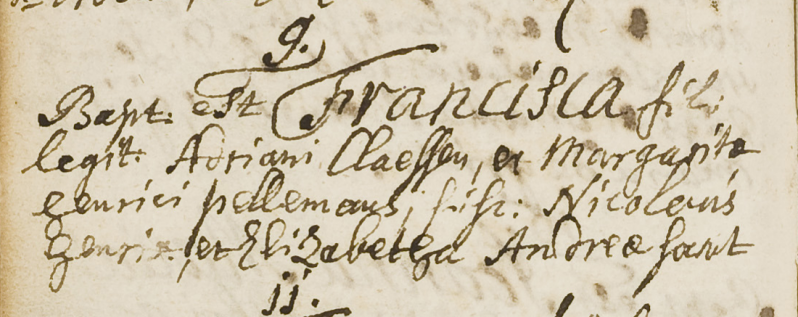 9.
Bapt. est Francisca fil:
legit. Adriani Claessen, et Margarita
Henrici pellemans, susc: Nicolaus
Henrix, et Elizabetha Andreæ sant
ij.